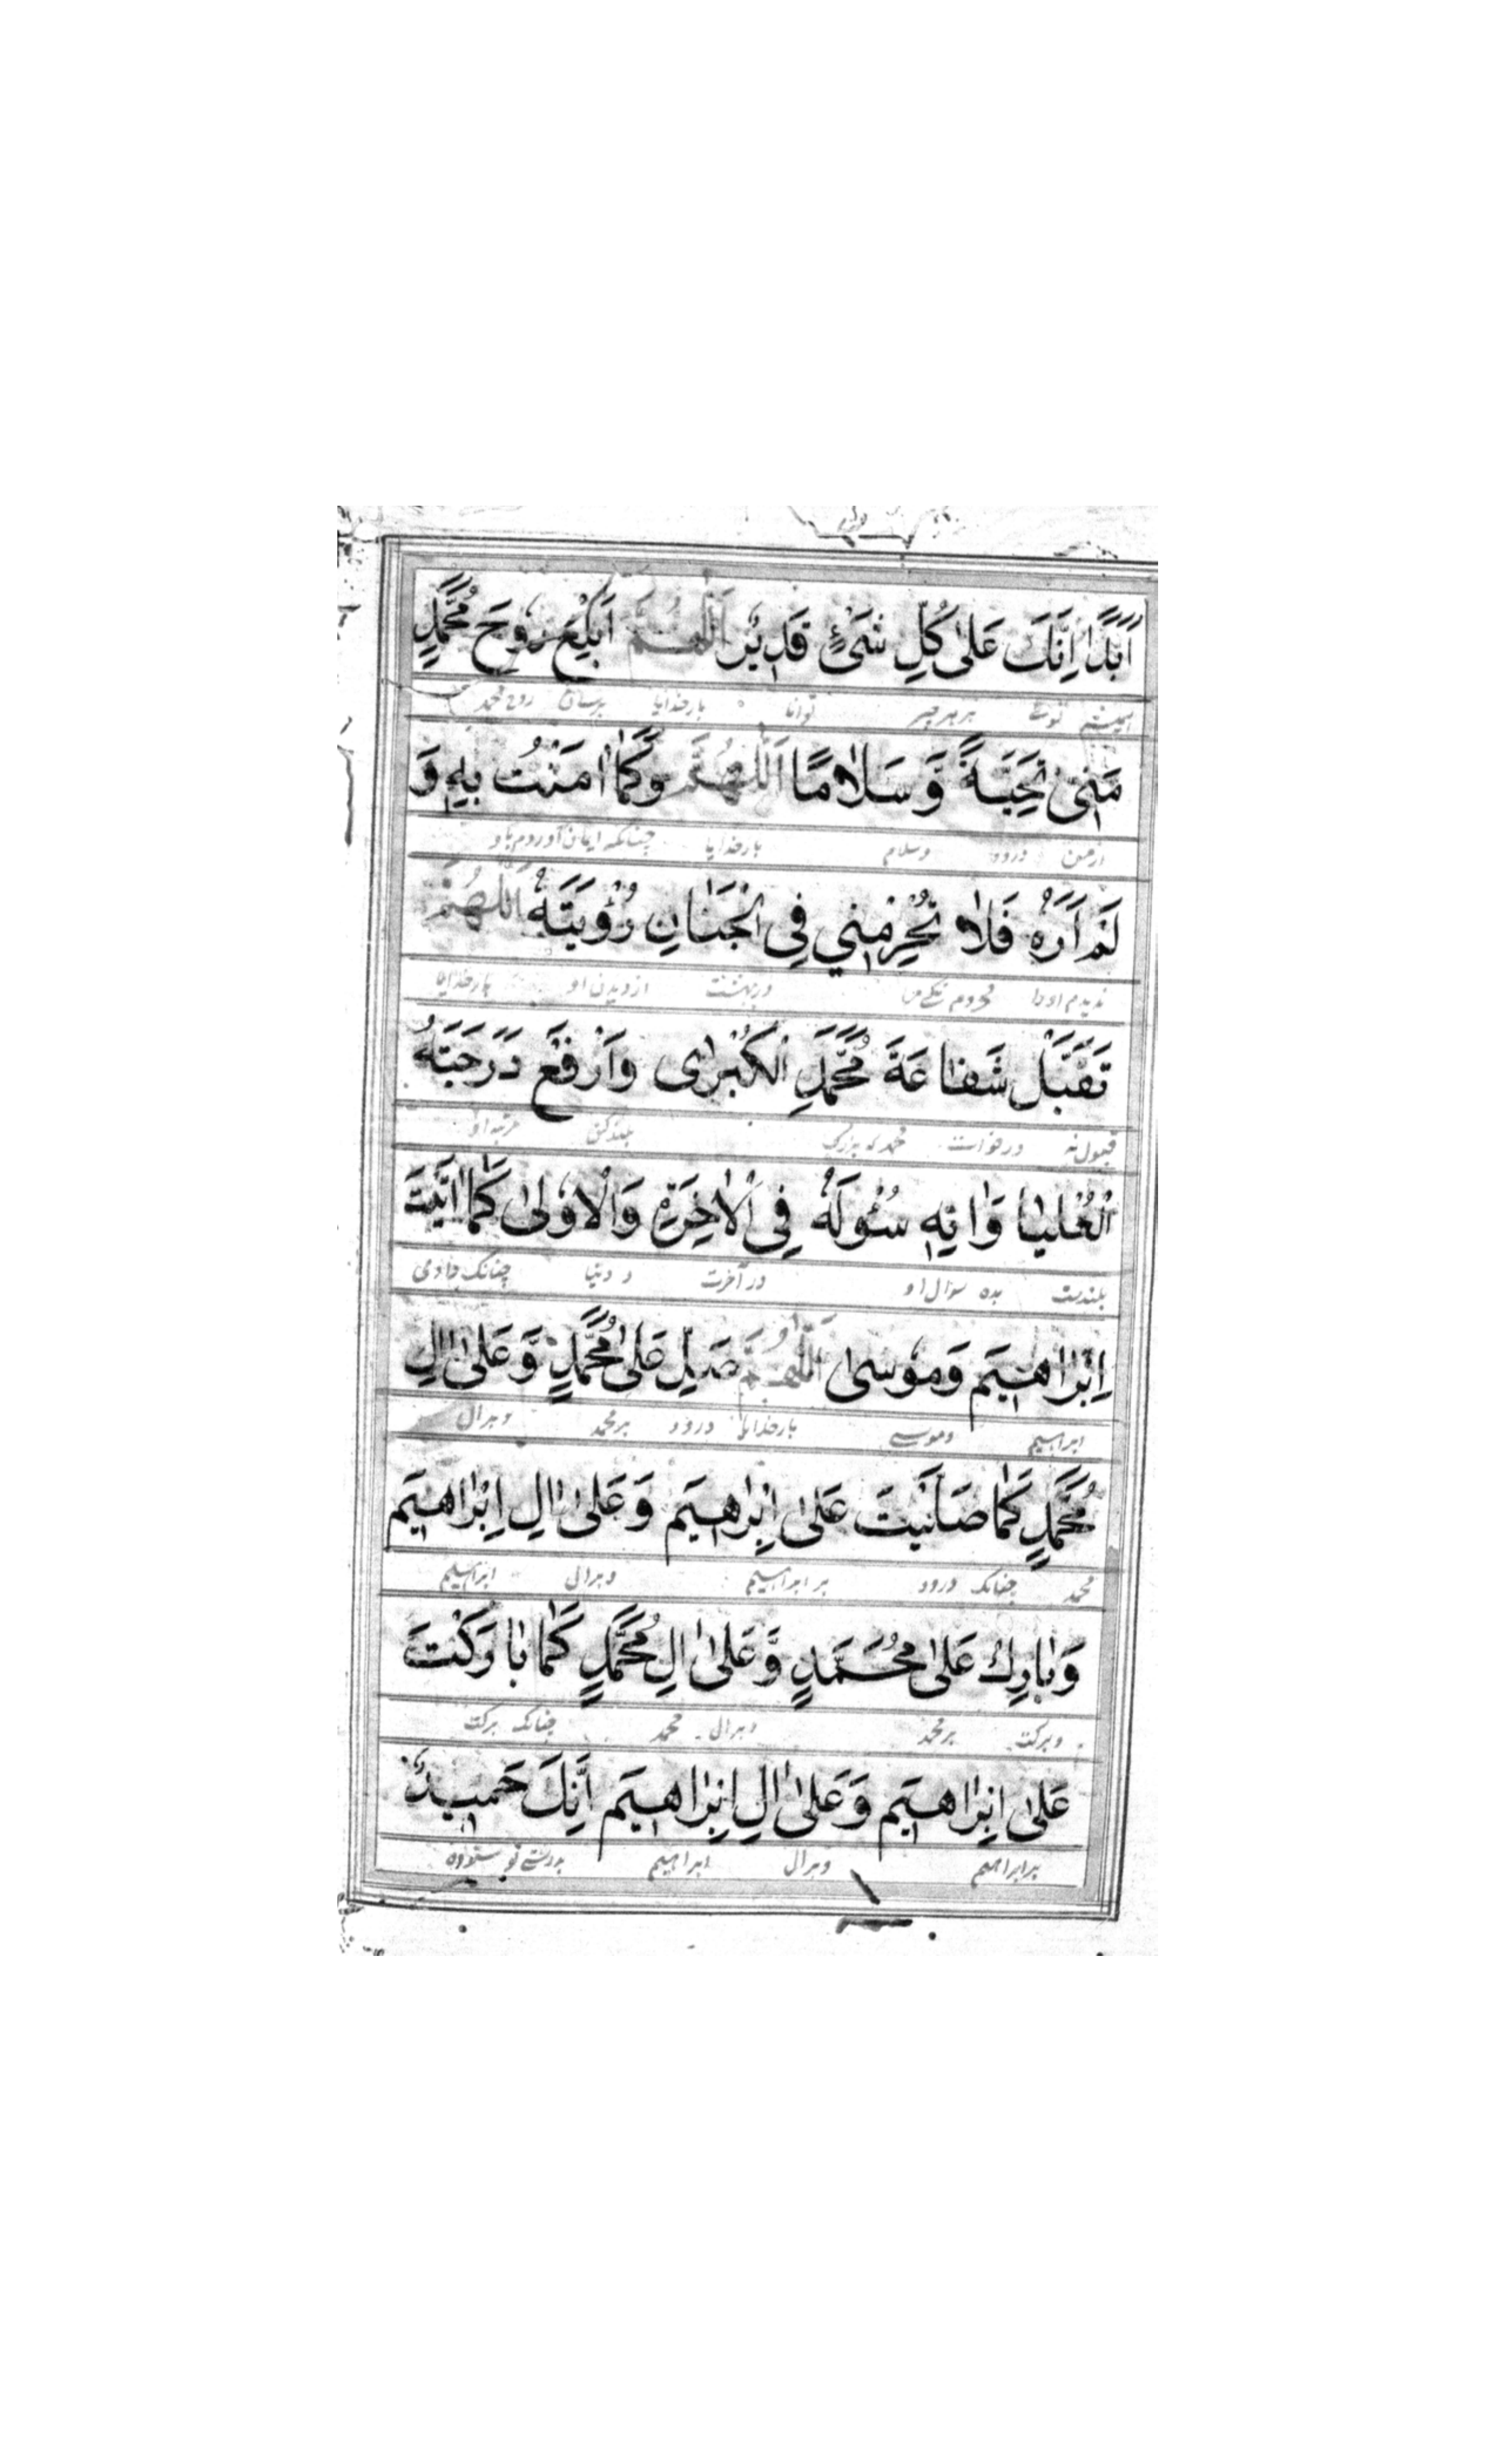 اَبَدًا اِنَّكَ عَلیٰ كُلِّ شَیْءٍ قَدِیْرٌ اَللّٰهُمَّ اَبْلِغْ رُوْحَ مُحَمَّدٍ
توانا بارخدایا برسان روح محمد
مِّنِّیْ تَحِیَّةً وَّسَلَامًا اَللّٰهُمَّ وَكَمَا اٰمَنْتُ بِهٖ وَ
ازمن درود وسلام بارخدایا چنانکه ایمان آوردم باو
لَمْ اَرَهٗ فَلَا تُحْرِمْنِیْ فِی الْجَنَانِ رُؤْیَتَهٗ اَللّٰهُمَّ
ندیدم اورا محروم مکن در بهشت از دیدن او بارخدایا
تَقَبَّلْ شَفَاعَةَ مُحَمَّدٍ الْكُبْرٰی وَارْفَعْ دَرَجَتَهُ
درخواست محمد که بزرگ بلندکن مرتبه او
الْعُلْیَا وَاٰتِهٖ سُئُوْلَهٗ فِی الْاٰخِرَةِ وَالْاُوْلیٰ كَمَا اٰتَیْتَ
بلندست بده سوال او در آخرت و دنیا چنانکه دادی
اِبْرَاهِیْمَ وَمُوْسیٰ اَللّٰهُمَّ صَلِّ عَلیٰ مُحَمَّدٍ وَّعَلیٰ اٰلِ
ابراهیم وموسی بارخدایا درود برمحمد وبرآل
مُحَمَّدٍ كَمَا صَلَّیْتَ عَلیٰ اِبْرٰهِیْمَ وَعَلیٰ اٰلِ اِبْرَاهِیْمَ
محمد چنانکه درود بر ابراهیم وبرآل ابراهیم
وَبَارِكْ عَلیٰ مُحَمَّدٍ وَّعَلیٰ اٰلِ مُحَمَّدٍ كَمَا بَارَكْتَ
وبرکت برمحمد وبرآل محمد چنانکه برکت
عَلیٰ اِبْرَاهِیْمَ وَعَلیٰ اٰلِ اِبْرَاهِیْمَ اِنَّكَ حَمِیْدٌ
برابراهیم وبرآل ابراهیم بدرستی تو ستوده